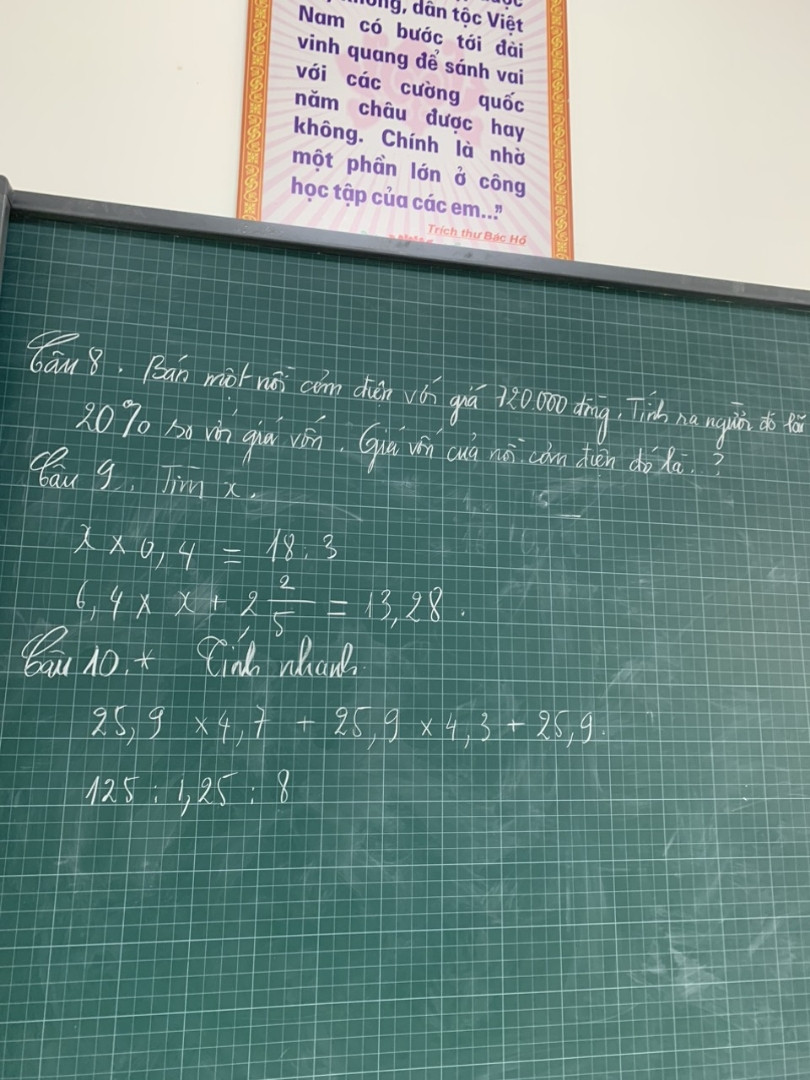 dân tộc Việt
Nam có bước tới đài
vinh quang để sánh vai
với các cường quốc
năm châu được hay
không. Chính là nhờ
một phần lớn ở công
học tập của các em..."
Trích thư Bác Hồ
Câu 8. Bán một nồi cơm điện với giá 720.000 đồng. Tính ra người đó lãi
20% so với giá vốn. Giá vốn của nồi cơm điện đó là..?
Câu 9. Tìm x.
x × 0,4 = 18.3
6,4 × x + 2 2/5 = 13,28.
Câu 10.* Tính nhanh.
25,9 × 4,7 + 25,9 × 4,3 + 25,9.
125 : 1,25 : 8